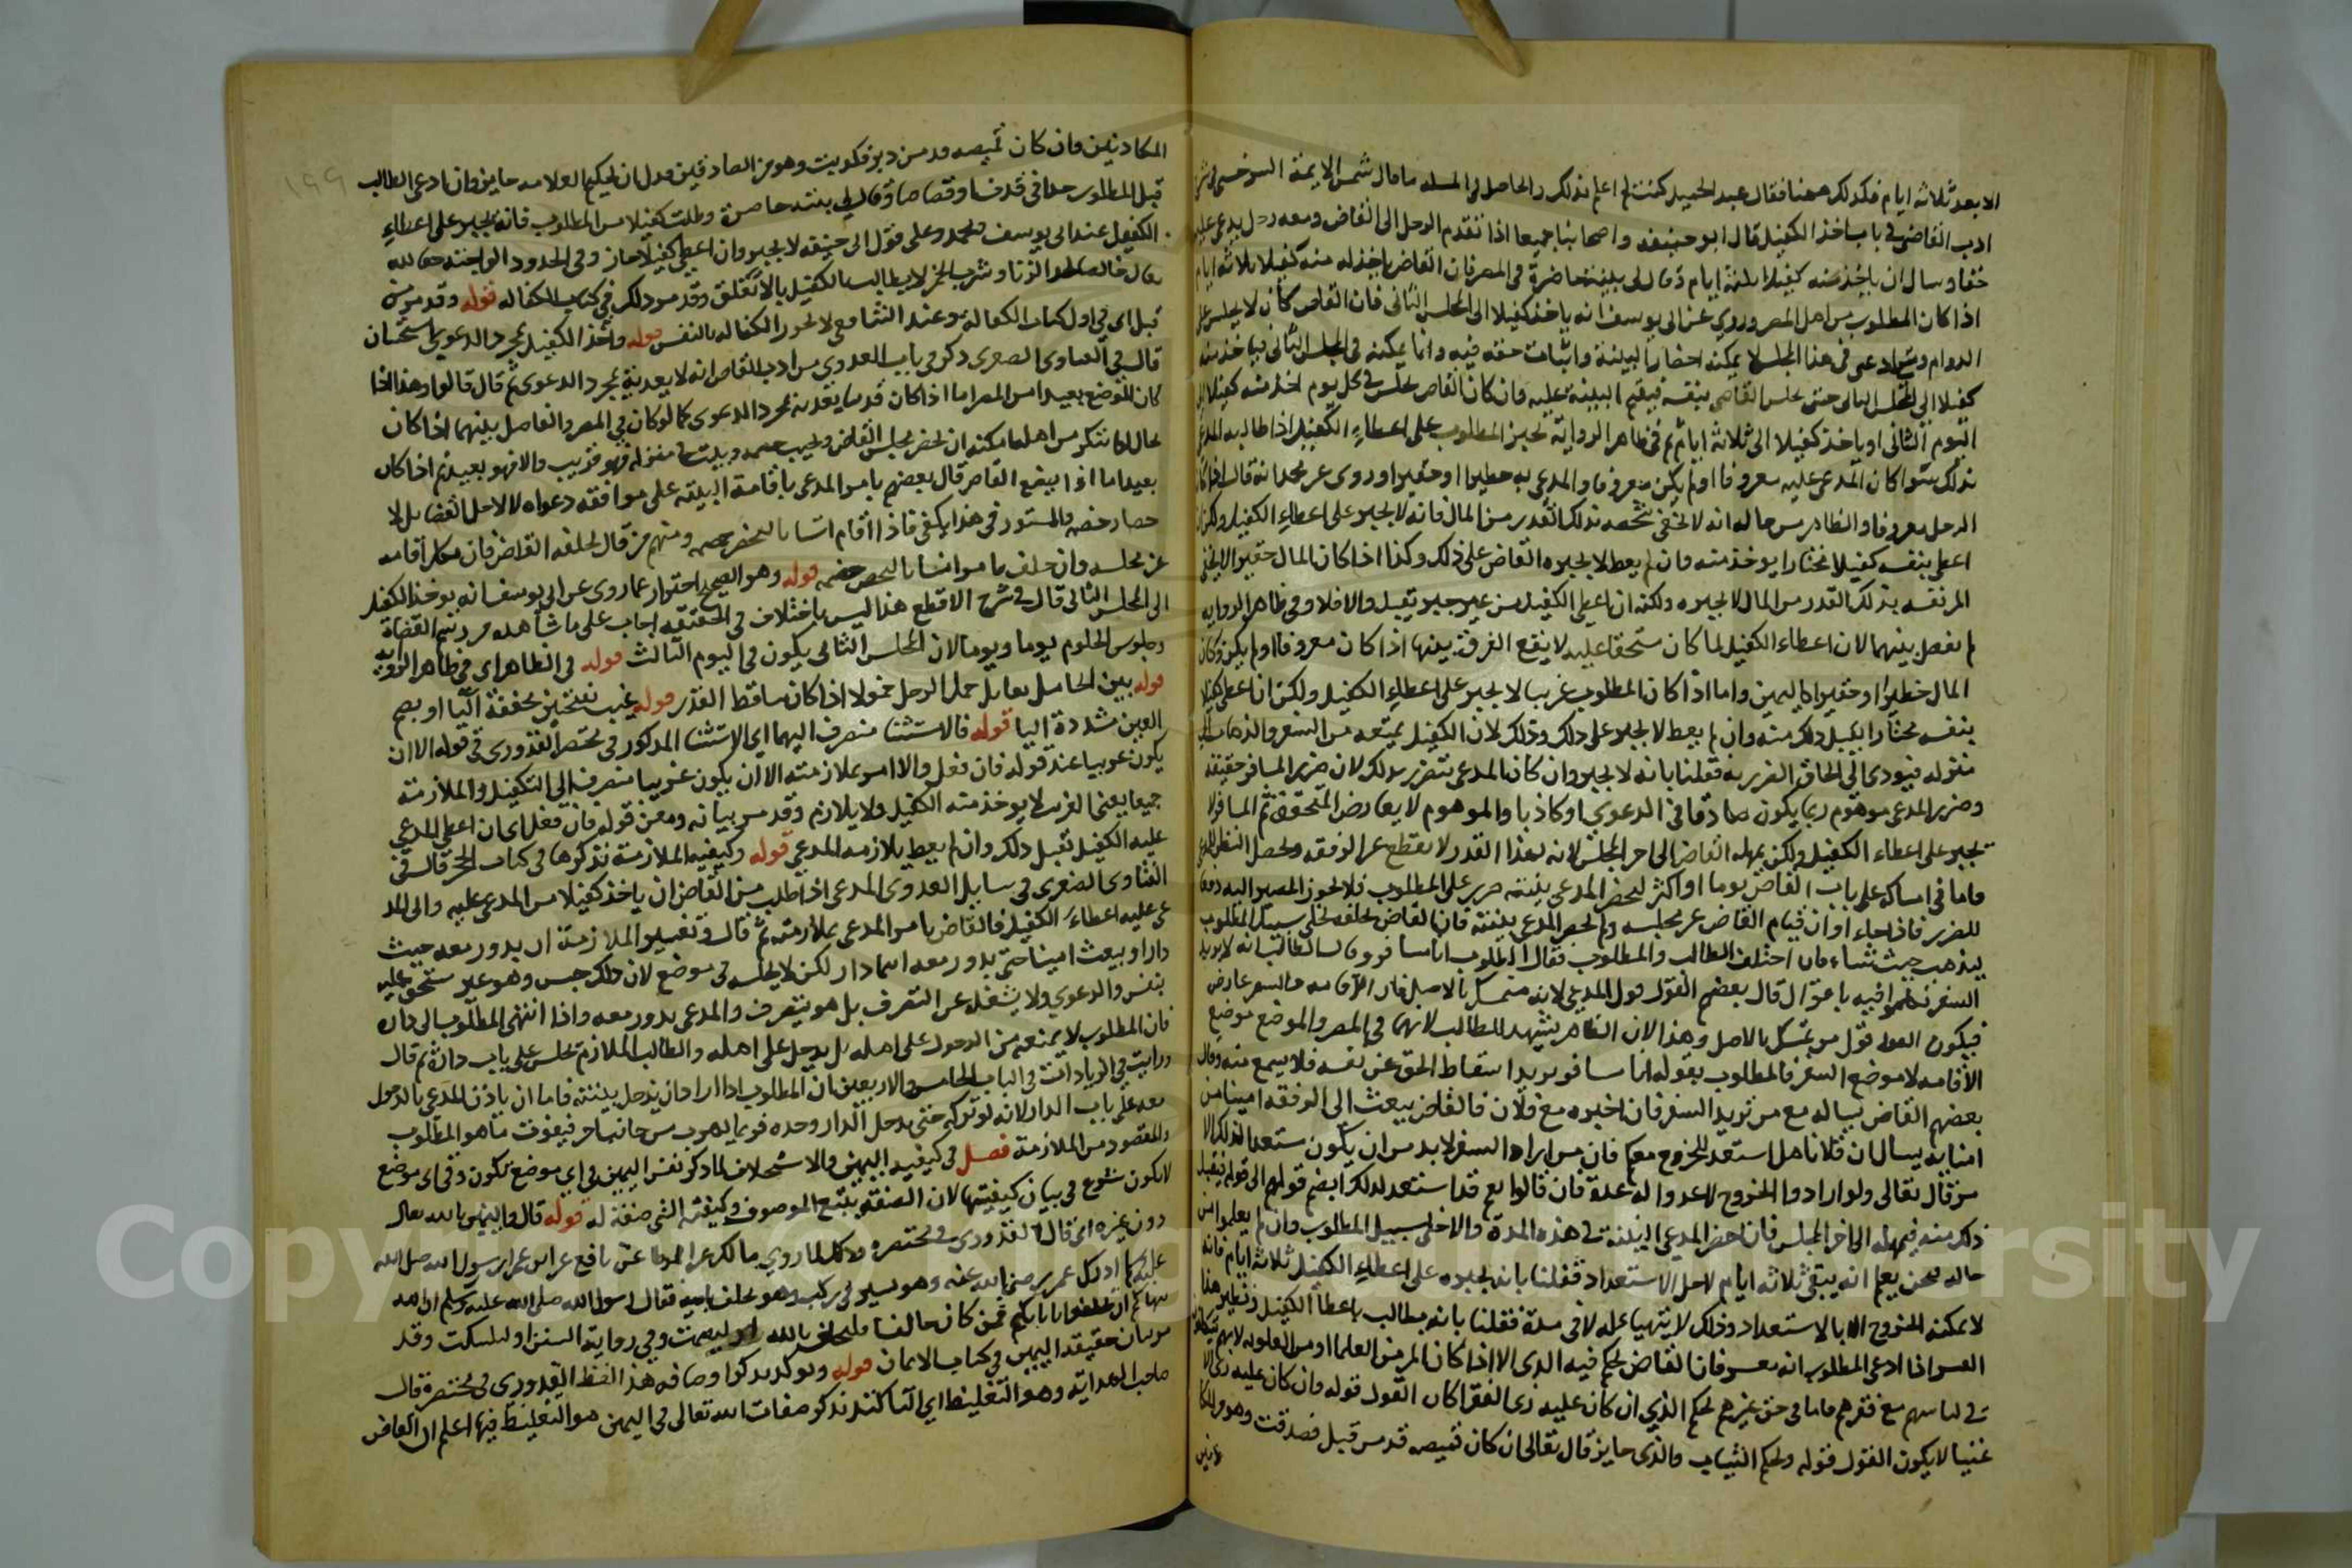 الا بعد ثلاثة ايام فكذلك ههنا فقال عبد الحميد كنت لم اعلم بذلك والحاصل في المسله ما قال شمس الايمة السرخسي في شرح
ادب القاضي في باب اخذ الكفيل قال ابو حنيفه واصحابنا جميعا اذا تقدم الرجل الى القاضي ومعه رجل يدعي عليه
حقا وسال ان ياخذ منه كفيلا ثلثة ايام وقال لي بينة حاضرة في المصر فان القاضي ياخذ له منه كفيلا ثلاثة ايام
اذا كان المطلوب من اهل المصر وروي عن ابي يوسف انه ياخذ كفيلا الى المجلس الثاني فان القاضي كان لا يجلس على
الدوام في هذا المجلس لا يمكنه احضار البينة واثبات حقه فيه وانما يمكنه في المجلس الثاني فياخذ منه
كفيلا الى المجلس الثاني حتى بنفسه فيقيم البينة عليه فان كان القاضي يجلس في كل يوم اخذ منه كفيلا الى
اليوم الثاني او ياخذ كفيلا الى ثلاثة ايام ثم في ظاهر الرواية يجبر المطلوب على اعطاء الكفيل اذا طالبه المدعي
بذلك سوا كان المدعى عليه معروفا او لم يكن معروفا والمدعى به خطيرا او حقيرا وروى عن محمد انه قال اذا كان
الرجل معروفا والظاهر من حاله انه لا يخفي شخصه بذلك القدر من المال فانه لا يجبر على اعطاء الكفيل ولكن ان
اعطى بنفسه كفيلا مختارا يوخذ منه وان لم يعط لا يجبره القاضي على ذلك وكذا اذا كان المال حقيرا لا يخفي
المر نفسه بذلك القدر من المال لا يجبره ولكنه ان اعطى الكفيل من غير جبر يقبل والا فلا وفي ظاهر الروايه
لم يفصل بينهما لان اعطاء الكفيل لما كان مستحقا عليه لا يقع الفرقة بينما اذا كان معروفا او لم يكن وكان
المال خطيرا او حقيرا كاليمين واما اذا كان المطلوب غريبا لا يجبر على اعطاء الكفيل ولكن ان اعطى كفيلا
بنفسه مختارا يقبل ذلك منه وان لم يعط لا يجبر على ذلك وذلك لان الكفيل يمنعه من السفر والذهاب الى
منزله فيودي الى الحاق الضرر به فقلنا بانه لا يجبر وان كان المدعي يتضرر بذلك لان ضرر المسافر حقيقة
وضرر المدعي موهوم ربما يكون صادقا في الدعوي او كاذبا والموهوم لا يعارض المتحقق ثم المسافر لا
يجبر على اعطاء الكفيل ولكن يمهله القاضي الى اخر المجلس لانه بهذا القدر لا ينقطع عن الرفقه ويحصل النظر للمدعي
فاما في امساكه على باب القاضي يوما او اكثر ليحضر المدعي بينته ضرر على المطلوب فلا يجوز المصير اليه دفعا
للضرر فاذا جاء اوان قيام القاضي عن مجلسه ولم يحضر المدعي بينته فان القاضي يحلفه ويخلي سبيل المطلوب
ليذهب حيث شاء فان اختلف الطالب والمطلوب فقال المطلوب انا مسافر وقال الطالب انه لا يريد
السفر تكلموا فيه باقوال قال بعضهم القول قول المدعي لانه متمسك بالاصل فان الاقامه والسفر عارض
فيكون القول قول من يتمسك بالاصل وهذا لان الظاهر يشهد للطالب لانهما في المصر والموضع موضع
الاقامه لا موضع السفر فالمطلوب بقوله انا مسافر يريد اسقاط الحق عن نفسه فلا يسمع منه وقال
بعضهم القاضي يساله مع من تريد السفر فان اخبره مع فلان فالقاضي يبعث الى الرفقه امينا من
امنايه يسال ان فلانا هل استعد للخروج معكم فان من اراد السفر لا بد من ان يكون مستعدا لذلك الا
مر قال تعالى ولو ارادوا الخروج لاعدوا له عدة فان قالوا نعم قد استعد لذلك ايضم قولهم الى قوله فيقبل
ذلك منه فيمهله الى اخر المجلس فان احضر المدعي البينة في هذه المدة والا خلى سبيل المطلوب وان لم يعلموا من
حاله فحن يعلم انه يبقى ثلاثة ايام لاجل الاستعداد فقلنا بانه يجبره على اعطاء الكفيل ثلاثة ايام فانه
لا يمكنه الخروج الا بالاستعداد وذلك لا يتهيا له الا في مدة فقلنا بانه يطالب باعطا الكفيل ونظير هذا
العسر اذا ادعى المطلوب انه معسر فان القاضي يحكم فيه الذي الا اذا كان المر من العلما او من العلويه لانهم
في لباسهم مع فقرهم فاما في حق غيرهم يحكم الذي ان كان عليه زى الفقرا كان القول قوله وان كان عليه زى الا
غنيا لا يكون القول قوله ويحكم الثياب والذي جايز قال تعالى ان كان قميصه قد من قبل فصدقت وهو من الكا
ذبين
١٩٩
المكاذبين وان كان قميصه قد من دبر فكذبت وهو من الصادقين فدل ان تحكيم العلامه جايز وان ادعى الطالب
قبل المطلوب حدا في قذف او قصاصا وقال لي بينة حاضرة وطلب كفيلا من المطلوب فانه يجبر على اعطاء
الكفيل عند ابي يوسف ومحمد وعلى قول ابي حنيفه لا يجبر وان اعطى كفيلا جاز وفي الحدود الواجبة حقا لله
تعالى خالصا كحد الزنا وشرب الخمر لا يطالب بالكفيل بالاتفاق وقد مر ذلك في كتاب الكفاله قوله وقد مر من
قبل اي في اول كتاب الكفالة وعند الشافعي لا تجوز الكفاله بالنفس قوله واخذ الكفيل بمجرد الدعوي استحسان
قال في الفتاوى الصغرى ذكر في باب العدوى من ادب القاضي انه لا يعديه بمجرد الدعوى ثم قال قالوا وهذا اذا
كان الموضع بعيدا من المصر اما اذا كان قريبا يعديه بمجرد الدعوى كما لو كان في المصر والفاصل بينهما اذا كان
بحال لو ابتكر من اهله امكنه ان يحضر مجلس القاضي ويجيب خصمه ويبيت في منزله فهو قريب والا فهو بعيد ثم اذا كان
بعيدا ماذا يصنع القاضي قال بعضهم يامر المدعي باقامة البينة على موافقه دعواه لا لاجل القضا بل لا
حضار خصمه والمستور في هذا يكفي فاذا اقام انسانا ليحضر خصمه ومنهم من قال يحلفه القاضي فان نكل اقامه
عن مجلسه وان حلف يامر انسانا ليحضر خصمه قوله وهو الصحيح احترز عما روى عن ابي يوسف انه يوخذ الكفيل
الى المجلس الثاني قال في شرح الاقطع هذا ليس باختلاف في الحقيقه اجاب على ما شاهده من رسم القضاة
وجلوس الحكوم يوما ويوما لان المجلس الثاني يكون في اليوم الثالث قوله في الظاهر اي في ظاهر الرواية
قوله بين الخامل يقابل خمل الرجل خمولا اذا كان ساقط القدر قوله غيب بفتحتين مخففة اليا او بضم
الغين مشددة اليا قوله فالاستثنا منصرف اليهما اي الاستثنا المذكور في مختصر القدوري في قوله الا ان
يكون غريبا عند قوله فان فعل والا امر بملازمته الا ان يكون غريبا منصرف الى التكفيل والملازمته
جميعا يعني الغريب لا يوخذ منه الكفيل ولا يلازم وقد مر بيانه ومعنى قوله فان فعل اي ان اعطى المدعي
عليه الكفيل قبل ذلك وان لم يعط يلازمه المدعي قوله وكيفيه الملازمة نذكرها في كتاب الحجر قال في
الفتاوى الصغرى في مسايل العدوى المدعى اذا طلب من القاضي ان ياخذ كفيلا من المدعى عليه وابى المد
عى عليه اعطاء الكفيل فالقاضي يامر المدعي بملازمته ثم قال وتفسير الملازمة ان يدور معه حيث
دار او يبعث امينا حتى يدور معه اينما دار لكن لا يجلسه في موضع لان ذلك حبس وهو غير مستحق عليه
بنفس الدعوي ولا يشغله عن التصرف بل هو يتصرف والمدعى يدور معه واذا انتهى المطلوب الى داره
فان المطلوب لا يمنعه من الدخول على اهله بل يدخل على اهله والطالب الملازم يجلس على باب داره ثم قال
ورايت في الزيادات في الباب الخامس والاربعين ان المطلوب اذا اراد ان يدخل بيته فاما ان ياذن للمدعي بالدخول
معه على باب الدار لانه لو تركه حتى يدخل الدار وحده فربما يهرب من جانب اخر فيفوت ما هو المطلوب
والمقصود من الملازمة فصل في كيفية اليمين والاستحلاف لما ذكر نفس اليمين في اي موضع تكون وفي اي موضع
لا تكون شرع في بيان كيفيتها لان الصفة يتبع الموصوف وكيفيه الشي صفة له قوله قال واليمين بالله تعالى
دون غيره اي قال القدوري في مختصره وذلك لما روي مالك عن نافع عن ابن عمر ان رسول الله صلى الله
عليه ادرك عمر رضي الله عنه وهو يسير في ركب وهو يحلف بابيه فقال رسول الله صلى الله عليه وسلم ان الله
ينهاكم ان تحلفوا بابايكم فمن كان حالفا فليحلف بالله او ليصمت وفي رواية السنن او ليسكت وقد
مر بيان حقيقة اليمين في كتاب الايمان قوله ويوكد بذكر اوصافه هذا لفظ القدوري في مختصره قال
صاحب الهداية وهو التغليظ اي التاكيد بذكر صفات الله تعالى في اليمين هو التغليظ فيها اعلم ان القاضي